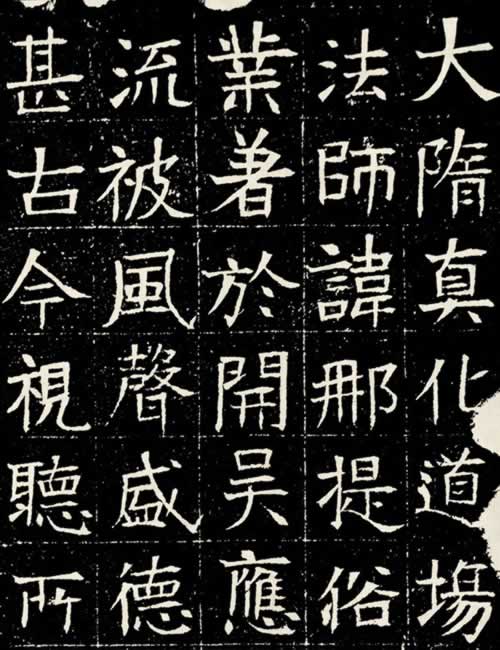 大隋真化道場
法師諱那提俗
業著於開吴應
流被風聲盛德
甚古今視聽所